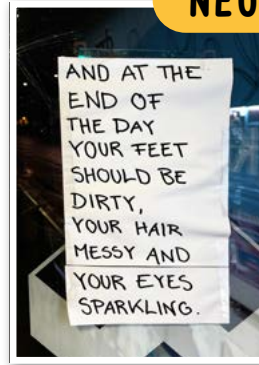 NEU
AND AT THE
END OF
THE DAY
YOUR FEET
SHOULD BE
DIRTY,
YOUR HAIR
MESSY AND
YOUR EYES
SPARKLING.